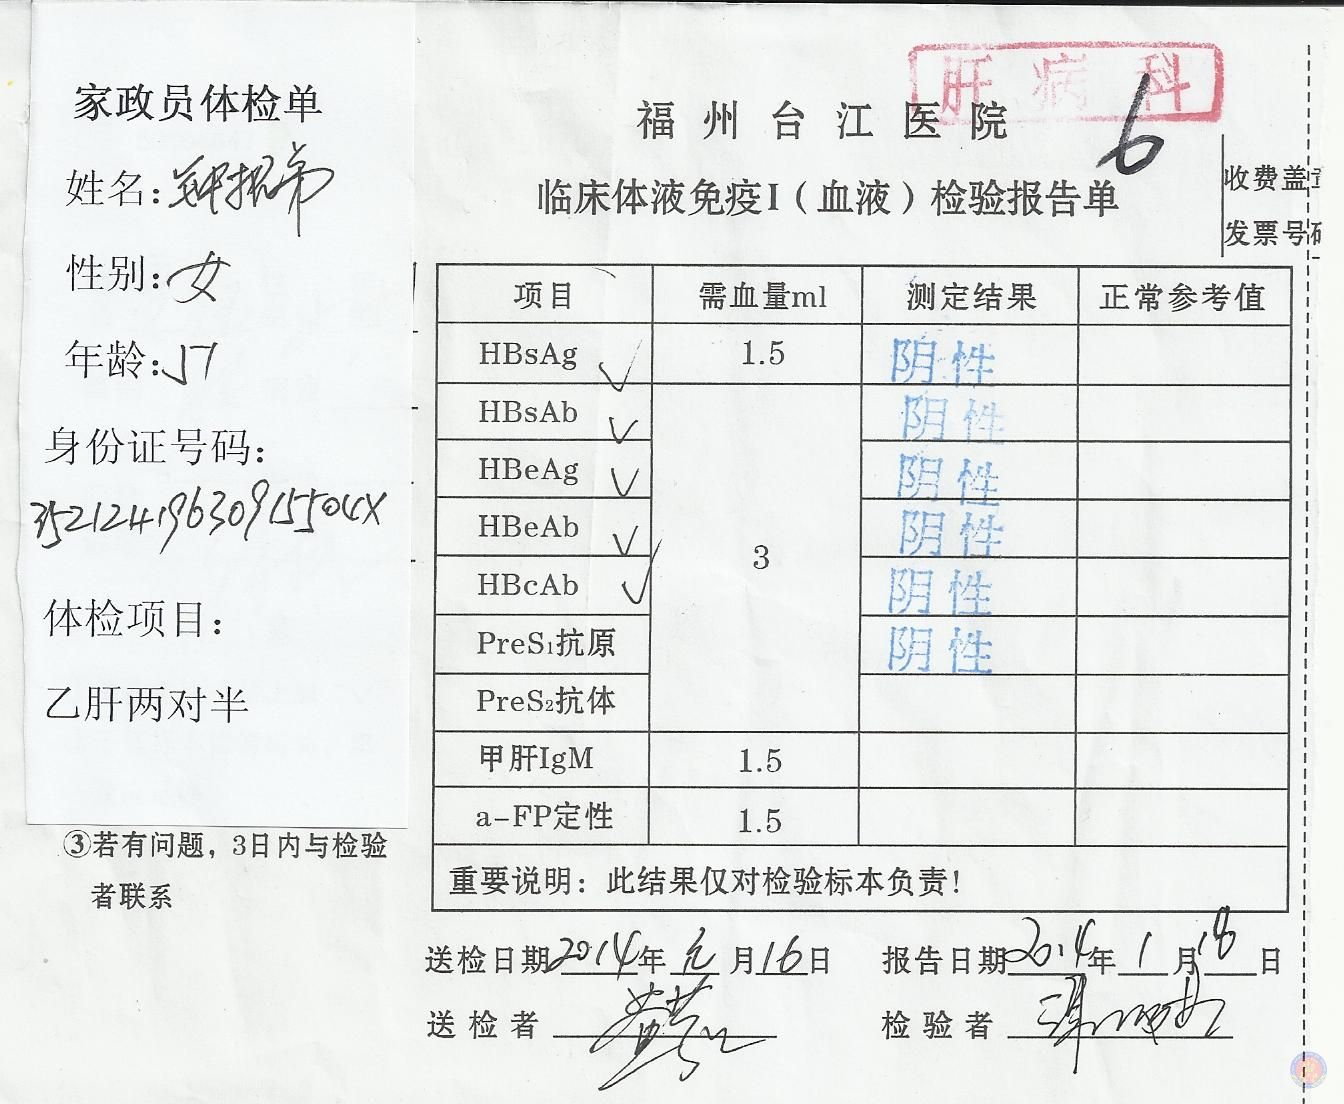 家政员体检单
姓名:
性别:女
年龄:51
身份证号码:
35212419630915504X
体检项目:
乙肝两对半
③若有问题，3日内与检验
者联系
肝病科
福州台江医院
6
临床体液免疫I（血液）检验报告单
收费盖章
发票号码
项目 需血量ml 测定结果 正常参考值
HBsAg ✓ 1.5 阴性
HBsAb ✓ 阴性
HBeAg ✓ 阴性
HBeAb ✓ 3 阴性
HBcAb ✓ 阴性
PreS₁抗原 阴性
PreS₂抗体
甲肝IgM 1.5
a-FP定性 1.5
重要说明：此结果仅对检验标本负责！
送检日期2014年元月16日 报告日期2014年1月18日
送检者 检验者